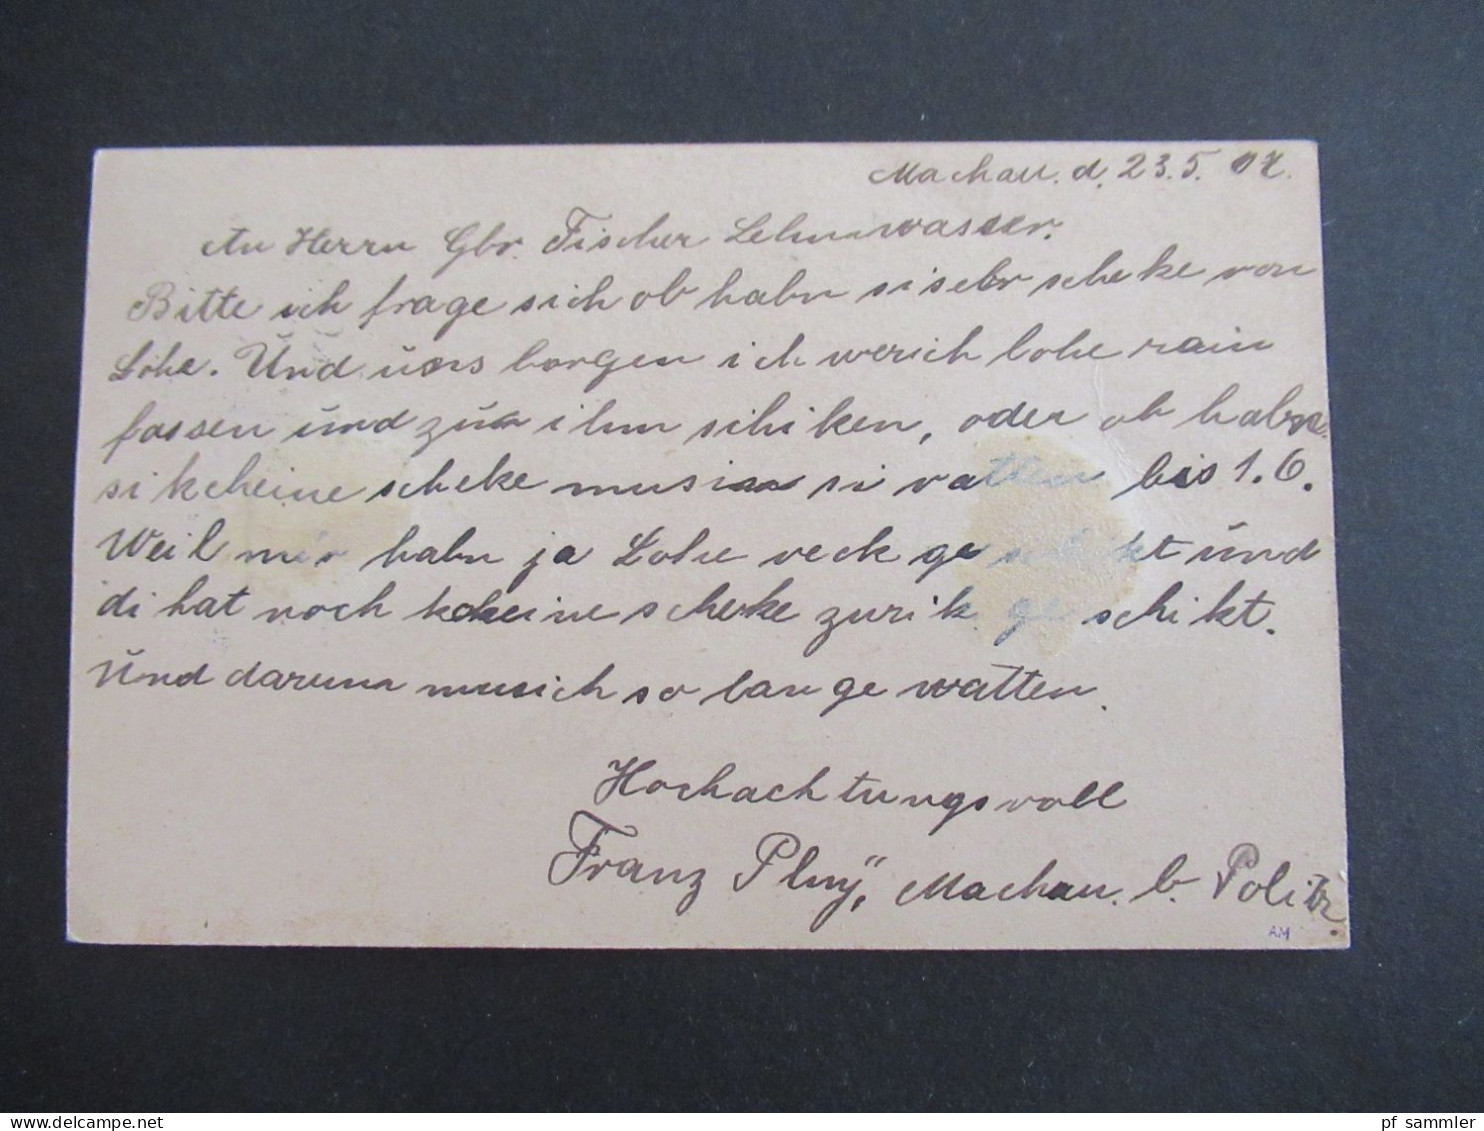 Machau. d. 23.5. 07.
An Herrn Gbr. Fischer Lehmwasser.
Bitte ich frage sich ob habn si sebr scheke von
Lohe. Und uns borgen ich werich lohe rain
fassen und zun ihm schiken, oder ob habn
si kcheine scheke mus si vatten bis 1.6.
Weil mir habn ja Lohe veck geschikt und
di hat noch kcheine scheke zurik geschikt.
Und darum musich so lange watten.
Hochachtungsvoll
Franz Plnÿ, Machau. b. Politz.
AM
pf sammler
www.delcampe.net